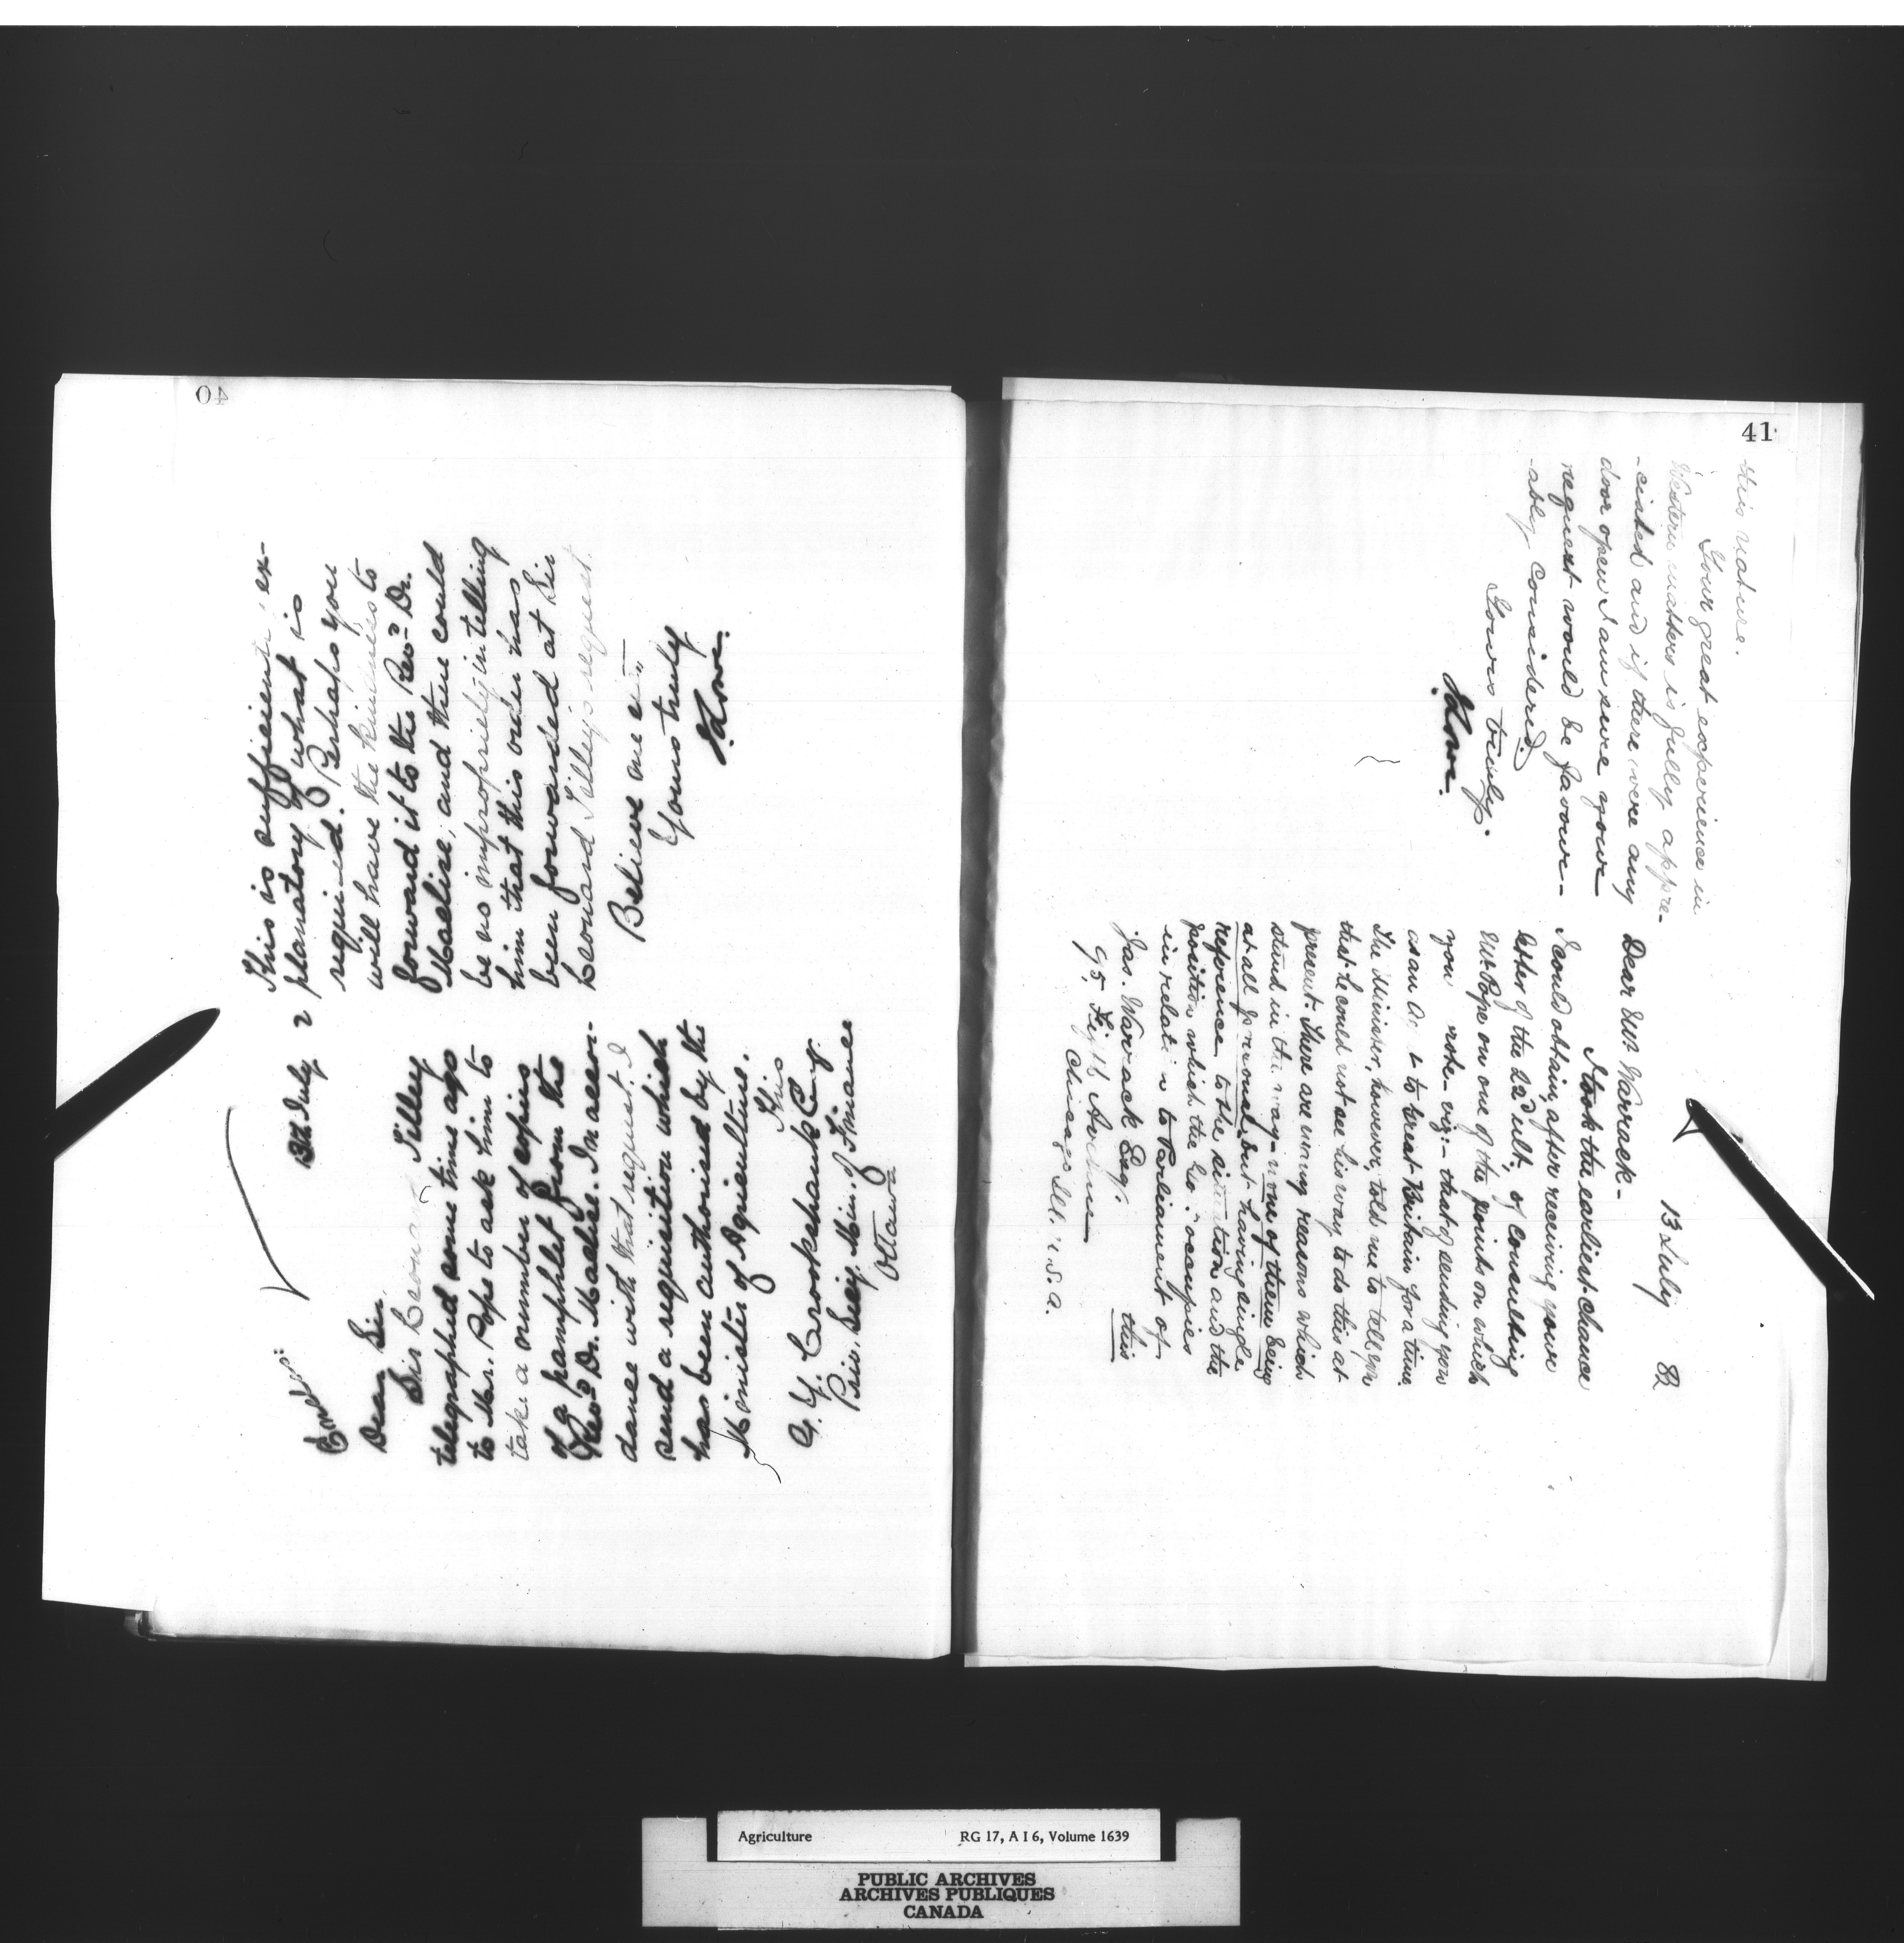 40
13 July 2
Confdl:
Dear Sir,
Sir Leonard Tilley
telegraphed some time ago
to Mr. Pope to ask him to
take a number of copies
of a pamphlet from the
Revd Dr. Maclise. In accor-
dance with that request, I
send a requisition which
has been authorised by the
Minister of Agriculture.
This
A. Y. Crookshank Esq.
Priv. Secy. Min. of Finance
Ottawa
This is sufficiently ex-
planatory of what is
required. Perhaps you
will have the kindness to
forward it to the Revd Dr.
Maclise, and there could
be no impropriety in telling
him that this order has
been forwarded at Sir
Leonard Tilley's request.
Believe me
Yours truly
J. Lowe.
41
13 July 82
Dear Mr. Warrack-
I took the earliest chance
I could obtain, after receiving your
letter of the 22d ult., of consulting
Mr. Pope on one of the points on which
you wrote - viz: - that of sending you
as an Agt to Great Britain for a time.
The Minister, however, told me to tell you
that he could not see his way to do this at
present. There are many reasons which
stand in the way - none of them being
at all personal, but having single
reference to the situation and the
position which the Govt occupies
in relation to Parliament of
this
Jas. Warrack Esq.
95, Fifth Avenue
Chicago Ill. U.S.A.
this nature.
Your great experience in
Western matters is fully appre-
-ciated and if there were any
door open I am sure your
request would be favour-
-ably considered.
Yours truly.
J. Lowe.
Agriculture RG 17, A I 6, Volume 1639
PUBLIC ARCHIVES
ARCHIVES PUBLIQUES
CANADA